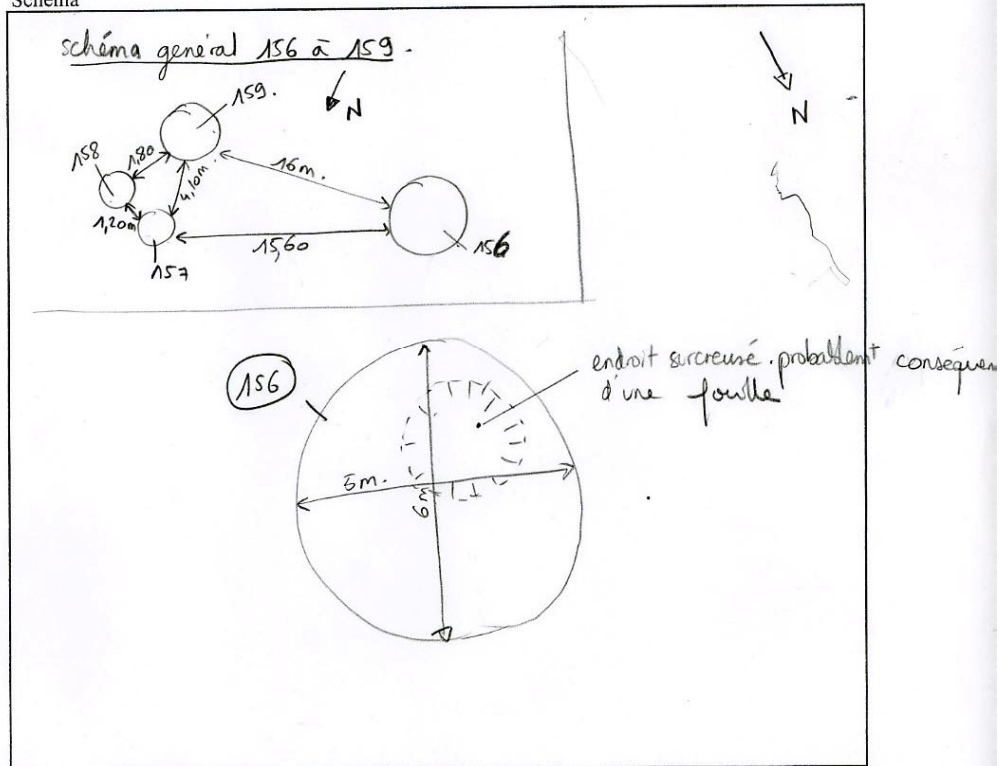 Schéma
schéma genéral 156 à 159.
N
159.
N
158
1,80
4,10m.
16m.
1,20m
15,60
156
157
156
endroit surcreusé. probablem^t conséquen
d'une fouille
5m.
6m